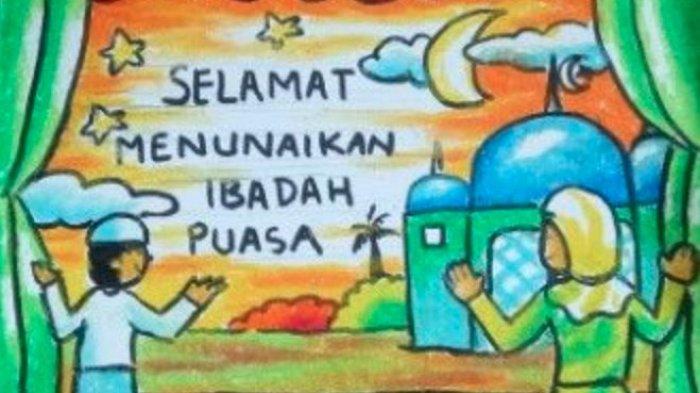 SELAMAT
MENUNAIKAN
IBADAH
PUASA